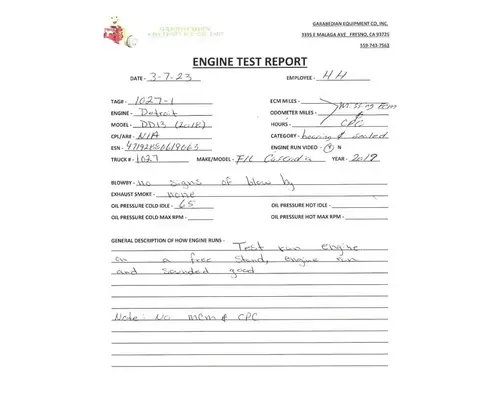 GARABEDIAN EQUIPMENT CO, INC.
3395 E MALAGA AVE, FRESNO, CA 93725
559-743-7563
ENGINE TEST REPORT
DATE - 3-7-23 EMPLOYEE - HH
TAG# - 1027-1 ECM MILES -
ENGINE - Detroit ODOMETER MILES - Missing ECM
MODEL - DD13 (2018) HOURS - CPC
CPL/AR# - N/A CATEGORY - & sealed
ESN - 471928S0619063 ENGINE RUN VIDEO - Y N
TRUCK # - 1027 MAKE/MODEL - F/L Cascadia YEAR - 2019
BLOWBY - no signs of blow by
EXHAUST SMOKE - none
OIL PRESSURE COLD IDLE - 65 OIL PRESSURE HOT IDLE -
OIL PRESSURE COLD MAX RPM - OIL PRESSURE HOT MAX RPM -
GENERAL DESCRIPTION OF HOW ENGINE RUNS - Test ran engine
on a free stand, engine ran
and sounded good
Note: No mcm & CPC